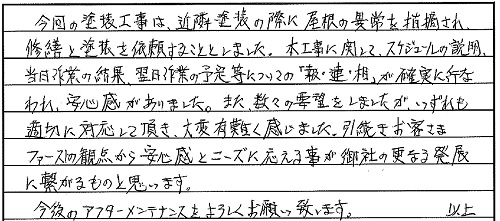 今回の塗装工事は、近隣塗装の際に屋根の異常を指摘され、
修繕と塗装を依頼することとしました。本工事に関して、スケジュールの説明、
当日作業の結果、翌日作業の予定等についての「報・連・相」が確実に行な
われ、安心感がありました。また、数々の要望をしましたが、いずれも
適切に対応して頂き、大変有難く感じました。引続きお客さま
ファーストの観点から安心感とニーズに応える事が御社の更なる発展
に繋がるものと思います。
今後のアフターメンテナンスをよろしくお願い致します。 以上